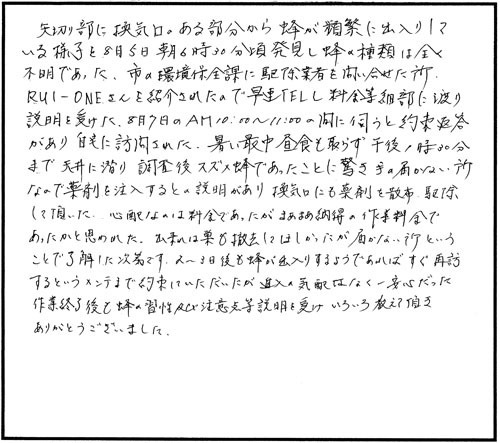 矢切部に換気口。ある部分から蜂が頻繁に出入りして
いる様子を8月5日朝6時30分頃発見し蜂の種類は全く
不明であった、市の環境保全課に駆除業者を問い合せた所、
RUI-ONEさんを紹介されたので早速TELし料金等細部に渡り
説明を受けた、8月7日のAM10:00〜11:00の間に伺うと約束返答
があり自宅に訪問された、暑い最中昼食も取らず午後1時30分
まで天井に潜り調査後スズメ蜂であったことに驚き手の届かない所
なので薬剤を注入するとの説明があり換気口にも薬剤を散布、駆除
して頂いた、心配なのは料金であったがまあまあ納得の作業料金で
あったかと思われた、出来れば巣も撤去してほしかったが届かない所という
ことで了解した次第です、2〜3日後も蜂が出入りするようであればすぐ再訪
するというメンテまで約束していただいたが進入の気配はなく一安心だった
作業終了後も蜂の習性及び注意点等説明を受けいろいろ教えて頂き
ありがとうございました、